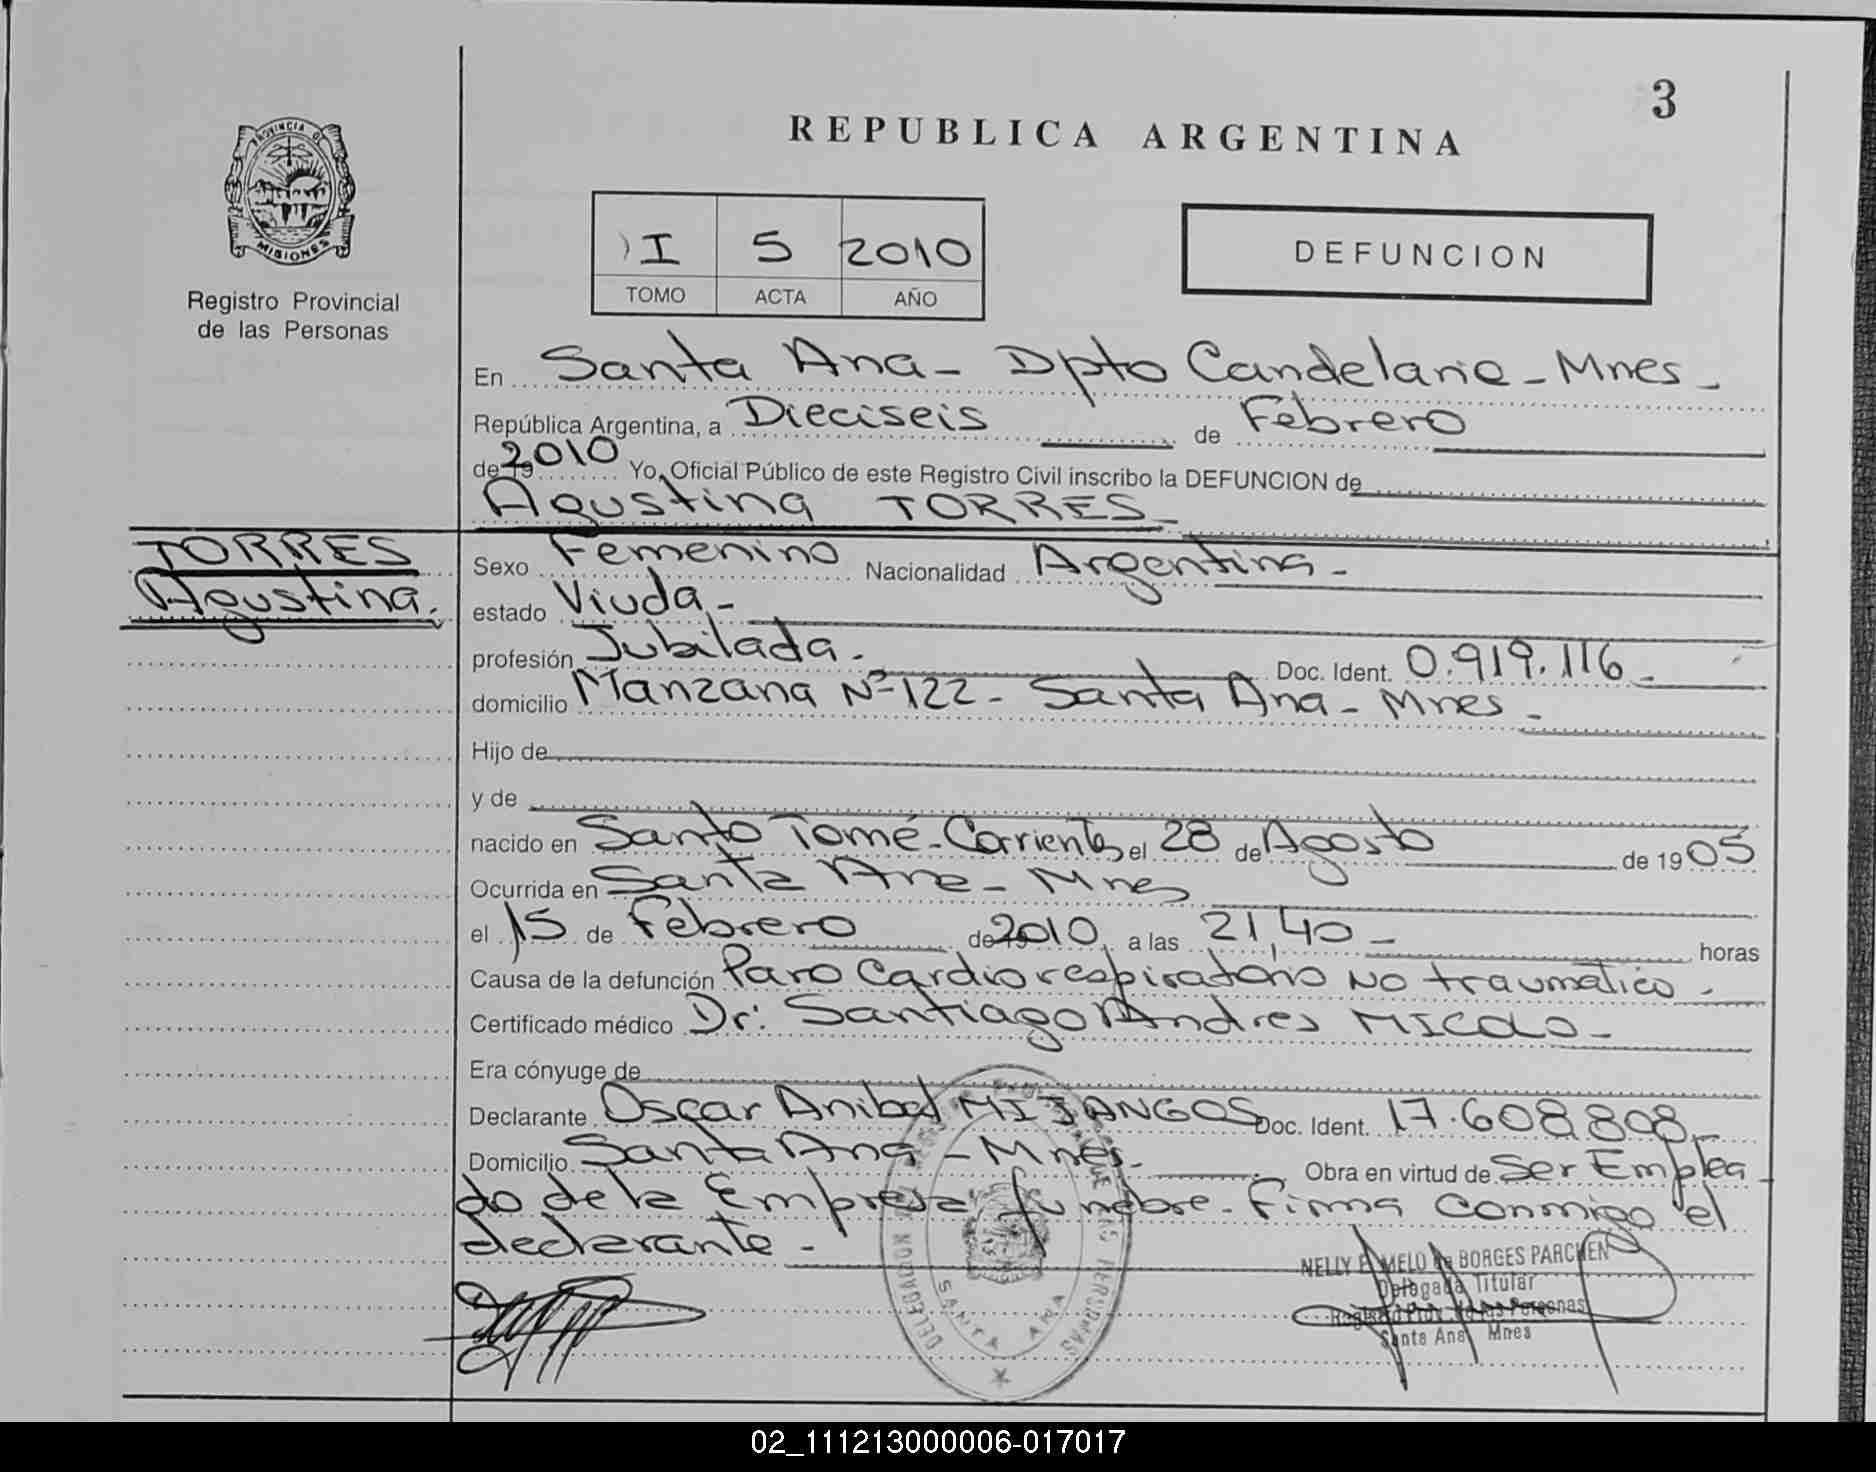 3
REPUBLICA ARGENTINA
PROVINCIA DE
MISIONES
Registro Provincial
de las Personas
I 5 2010
TOMO ACTA AÑO
DEFUNCION
En Santa Ana - Dpto Candelaria - Mnes -
República Argentina, a Dieciseis de Febrero
de 2010 Yo, Oficial Público de este Registro Civil inscribo la DEFUNCION de
Agustina TORRES -
TORRES
Agustina.
Sexo Femenino Nacionalidad Argentina -
estado Viuda -
profesión Jubilada. - Doc. Ident. 0.919.116 -
domicilio Manzana Nº 122 - Santa Ana - Mnes -
Hijo de
y de
nacido en Santo Tomé - Corrientes el 28 de Agosto de 1905
Ocurrida en Santa Ana - Mnes
el 15 de Febrero de 2010, a las 21,40 - horas
Causa de la defunción Paro Cardiorespiratorio No traumático.
Certificado médico Dr: Santiago Andres MICOLO -
Era cónyuge de
Declarante Oscar Anibal MIJANGOS Doc. Ident. 17.608.808 -
Domicilio Santa Ana - Mnes. - Obra en virtud de Ser Emplea
do de la Empresa funebre - Firma Conmigo el
declarante -
NELLY E. MELO de BORGES PARCHEN
Delegada Titular
Registro Prov. de las Personas
Santa Ana Mnes
DELEGACION
SANTA ANA
02_111213000006-017017